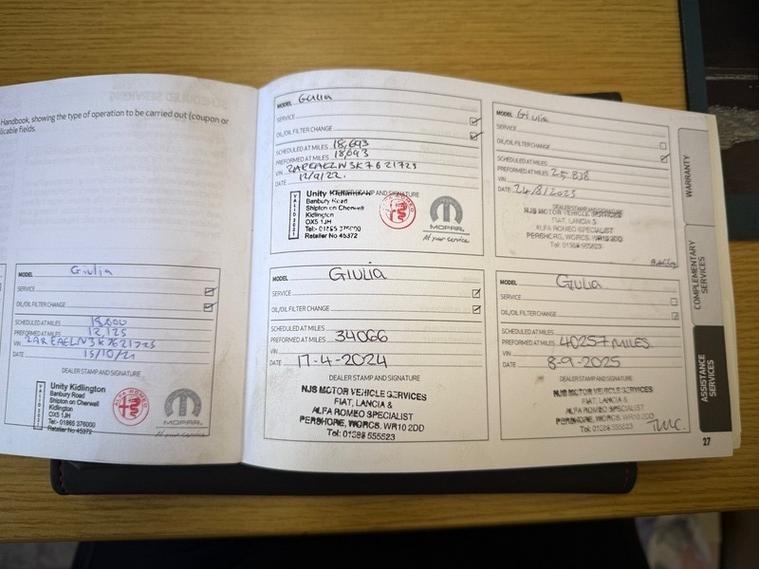 Handbook, showing the type of operation to be carried out (coupon or
licable fields.
MODEL Giulia
SERVICE
OIL/OIL FILTER CHANGE
SCHEDULED AT MILES
PREFORMED AT MILES 12,125
VIN ZAREAELN3K7621725
DATE 15/10/21
DEALER STAMP AND SIGNATURE
Unity Kidlington
Banbury Road
Shipton on Cherwell
Kidlington
OX5 1JH
Tel:- 01865 376000
Retailer No 45372
MOPAR
At your service
MODEL Giulia
SERVICE
OIL/OIL FILTER CHANGE
SCHEDULED AT MILES 18,693
PREFORMED AT MILES 18,693
VIN ZAREAELN3K7621725
DATE 12/9/22.
DEALER STAMP AND SIGNATURE
Unity Kidlington
Banbury Road
Shipton on Cherwell
Kidlington
OX5 1JH
Tel:- 01865 376000
Retailer No 45372
MOPAR
At your service
MODEL Giulia
SERVICE
OIL/OIL FILTER CHANGE
SCHEDULED AT MILES
PREFORMED AT MILES 25 838
VIN
DATE 24/8/2023
DEALER STAMP AND SIGNATURE
NJS MOTOR VEHICLE SERVICES
FIAT, LANCIA &
ALFA ROMEO SPECIALIST
PERSHORE, WORCS. WR10 2DD
Tel: 01386 555523
MODEL GIULIA
SERVICE
OIL/OIL FILTER CHANGE
SCHEDULED AT MILES
PREFORMED AT MILES 34066
VIN
DATE 17-4-2024
DEALER STAMP AND SIGNATURE
NJS MOTOR VEHICLE SERVICES
FIAT, LANCIA &
ALFA ROMEO SPECIALIST
PERSHORE, WORCS. WR10 2DD
Tel: 01386 555523
MODEL GIULIA
SERVICE
OIL/OIL FILTER CHANGE
SCHEDULED AT MILES
PREFORMED AT MILES 40257 MILES
VIN
DATE 8-9-2025
DEALER STAMP AND SIGNATURE
NJS MOTOR VEHICLE SERVICES
FIAT, LANCIA &
ALFA ROMEO SPECIALIST
PERSHORE, WORCS. WR10 2DD
Tel: 01386 555523
WARRANTY
COMPLEMENTARY
SERVICES
ASSISTANCE
SERVICES
27